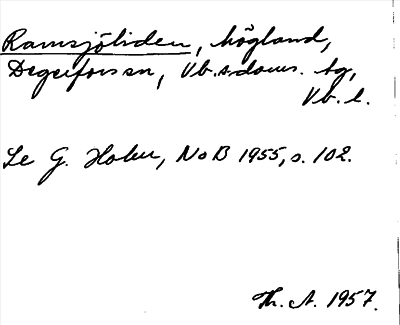 Ramsjöliden, högland,
Degerforsen, Vb.s.doms. tg,
Vb. l.
Se G. Holm, NoB 1955, s. 102.
Th. A. 1957.